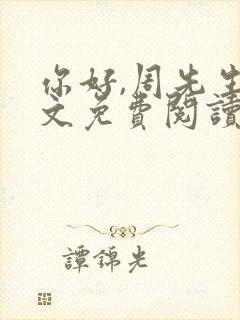 你好,周先生
文免費閱讀
譚錦光